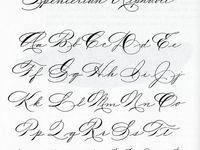 Spencerian Alphabet
Aa Bb Cc Dd Ee
Ff Gg Hh Ii Jj
Kk Ll Mm Nn Oo
Pp Qq Rr Ss Tt